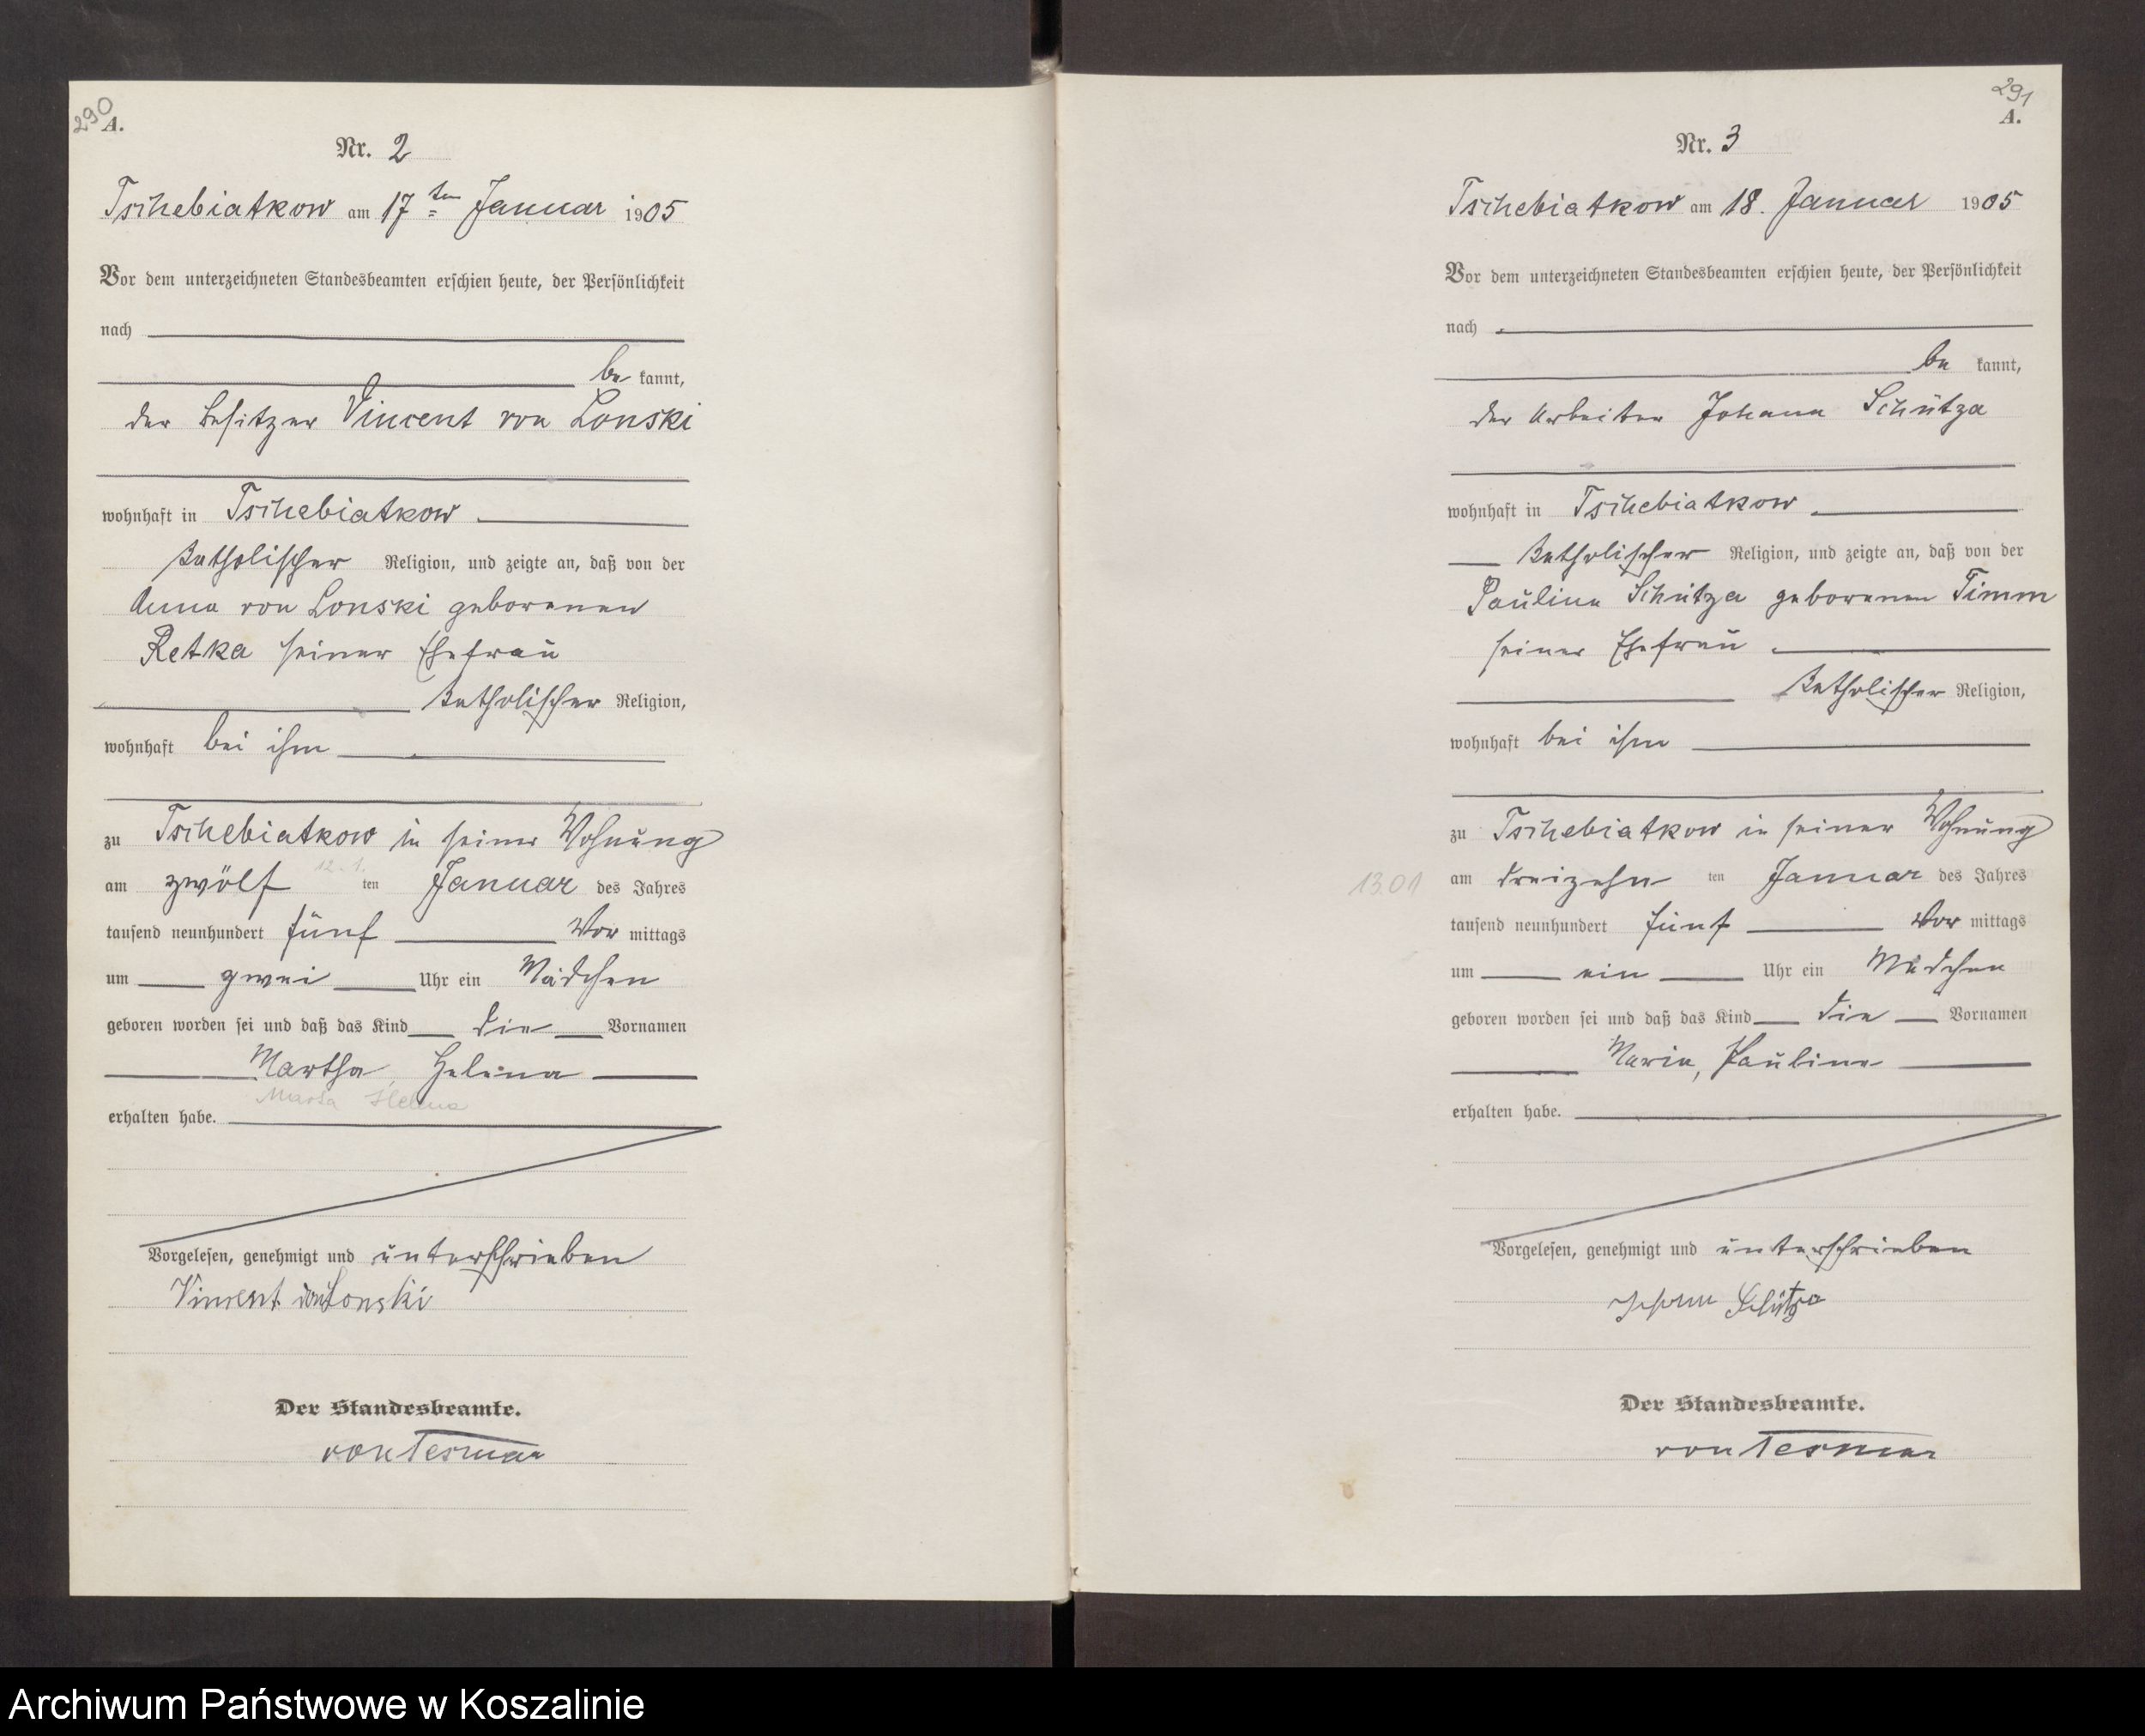 290
A.
Nr. 2
Tschebiatkow am 17ten Januar 1905
Vor dem unterzeichneten Standesbeamten erschien heute, der Persönlichkeit
nach
be kannt,
der Besitzer Vincent von Lonski
wohnhaft in Tschebiatkow
katholischer Religion, und zeigte an, daß von der
Anna von Lonski geborenen
Retka seiner Ehefrau
katholischer Religion,
wohnhaft bei ihm
zu Tschebiatkow in seiner Wohnung
am zwölf ten Januar des Jahres
12.1.
tausend neunhundert fünf Vor mittags
um zwei Uhr ein Mädchen
geboren worden sei und daß das Kind die Vornamen
Martha, Helena
Marta Helena
erhalten habe.
Vorgelesen, genehmigt und unterschrieben
Vincent von Lonski
Der Standesbeamte.
von Tesmar
291
A.
Nr. 3
Tschebiatkow am 18. Januar 1905
Vor dem unterzeichneten Standesbeamten erschien heute, der Persönlichkeit
nach
be kannt,
der Arbeiter Johann Schütza
wohnhaft in Tschebiatkow
katholischer Religion, und zeigte an, daß von der
Pauline Schütza geborenen Timm
seiner Ehefrau
katholischer Religion,
wohnhaft bei ihm
zu Tschebiatkow in seiner Wohnung
13.01 am dreizehn ten Januar des Jahres
tausend neunhundert fünf Vor mittags
um ein Uhr ein Mädchen
geboren worden sei und daß das Kind die Vornamen
Maria, Pauline
erhalten habe.
Vorgelesen, genehmigt und unterschrieben
Johann Schütza
Der Standesbeamte.
von Tesmar
Archiwum Państwowe w Koszalinie